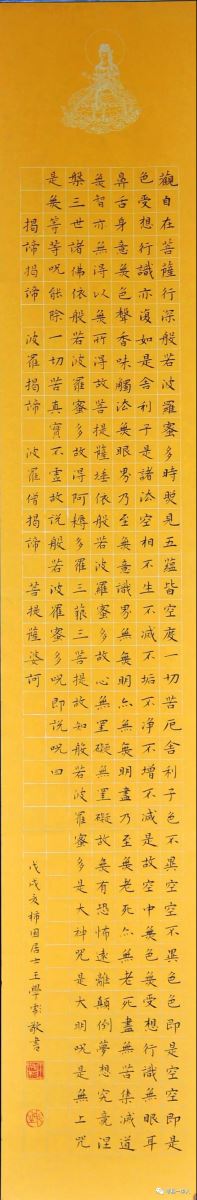 觀自在菩薩行深般若波羅蜜多時照見五蘊皆空度一切苦厄舍利子色不異空空不異色色即是空空即是
色受想行識亦復如是舍利子是諸法空相不生不滅不垢不淨不增不減是故空中無色無受想行識無眼耳
鼻舌身意無色聲香味觸法無眼界乃至無意識界無無明亦無無明盡乃至無老死亦無老死盡無苦集滅道
無智亦無得以無所得故菩提薩埵依般若波羅蜜多故心無罣礙無罣礙故無有恐怖遠離顛倒夢想究竟涅
槃三世諸佛依般若波羅蜜多故得阿耨多羅三藐三菩提故知般若波羅蜜多是大神咒是大明咒是無上咒
是無等等呪能除一切苦真實不虛故說般若波羅蜜多呪即說呪曰
揭諦揭諦 波羅揭諦 波羅僧揭諦 菩提薩婆訶
戊戌 柿園居士王學 敬書